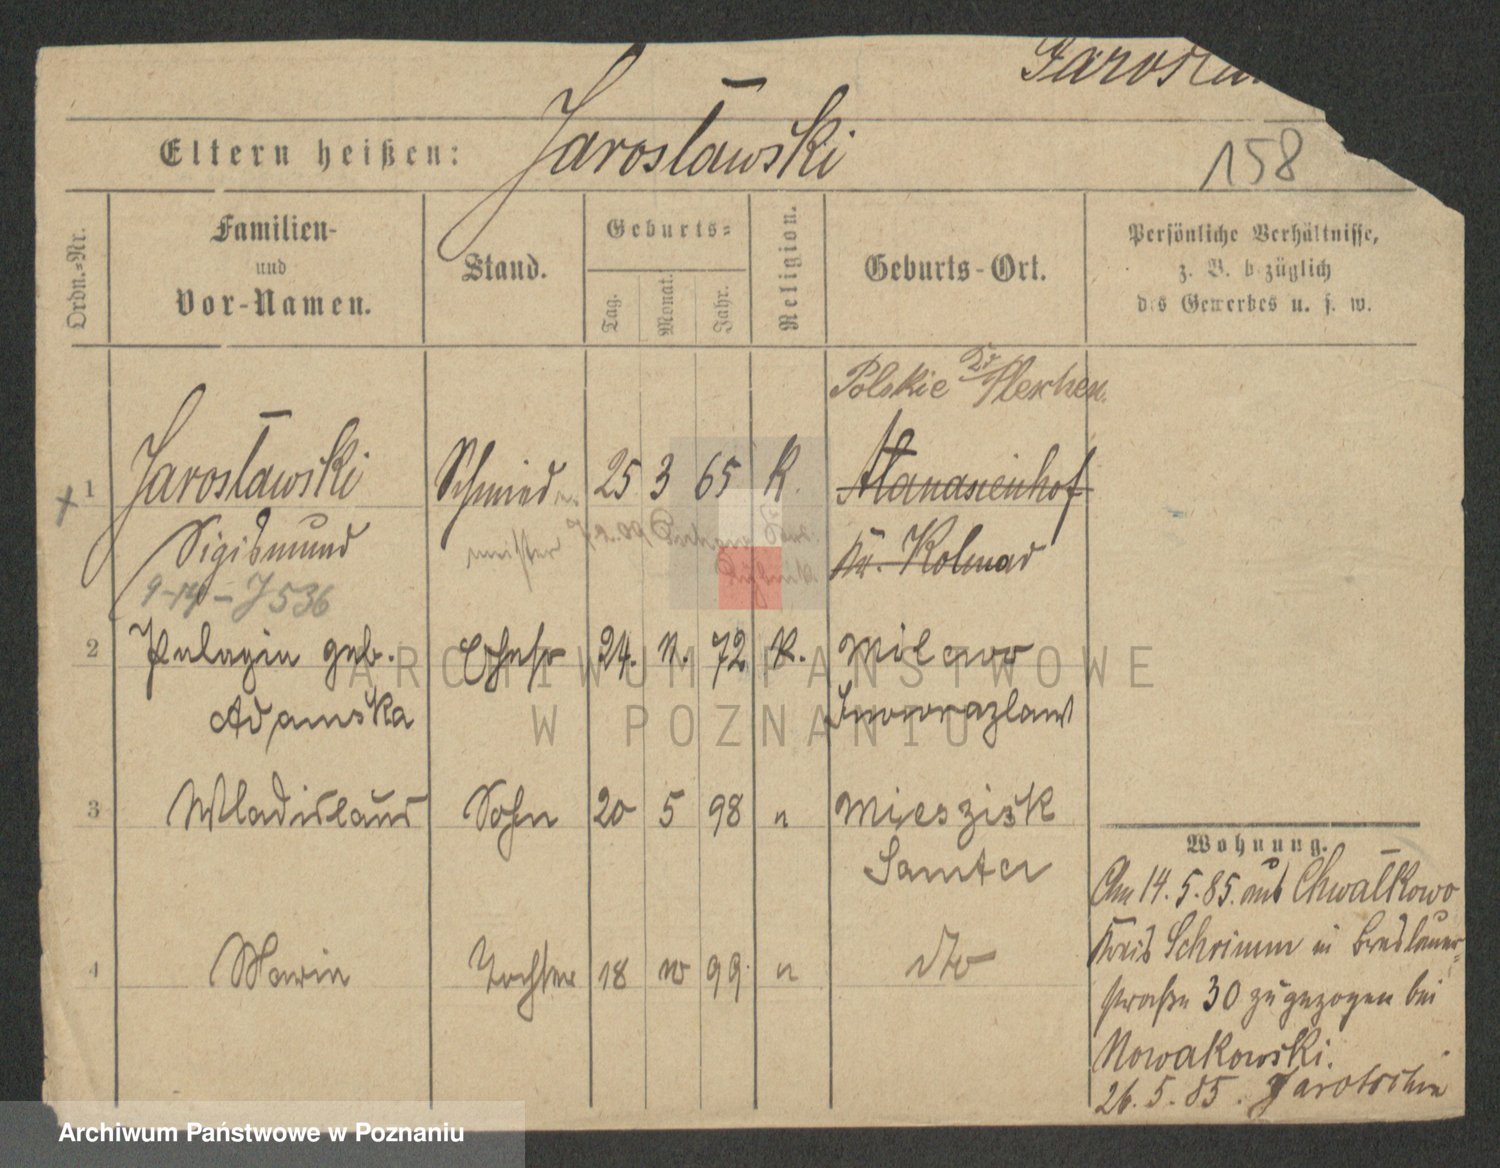 Jarosła
Eltern heißen: Jarosławski
158
Ordn.-Nr.
Familien-
und
Vor-Namen.
Stand.
Geburts-
Tag.
Monat.
Jahr.
Religion.
Geburts-Ort.
Persönliche Verhältnisse,
z. B. bezüglich
des Gewerbes u. s. w.
Polskie Kr. Pleschen.
1 Jarosławski Schmied 25 3 65 K. Atanasienhof
Sigismund meister Kr. Kolmar
9-14-J536
2 Pelagia geb. Ehefr 24. 11. 72 K. Milewo
Adamska Inowrazlaw
3 Wladislaus Sohn 20 5 98 " Mieszisk
Samter
4 Maria Tochter 18 10 99 " dto
Wohnung.
Am 14.5.85. aus Chwałkowo
Kreis Schrimm in Breslauer-
straße 30 zugezogen bei
Nowakowski.
26.5.85. Jarotschin
ARCHIWUM PAŃSTWOWE
W POZNANIU
Archiwum Państwowe w Poznaniu